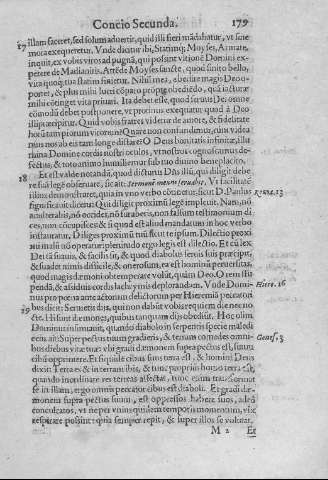 Concio Secunda. 179
17 illam faceret, sed solum aduertit, quod illi fieri mādabatur, vt sine
mora exequeretur. Vnde dicitur ibi, Statimq; Moyses, Armate,
inquit, ex vobis viros ad pugnā, qui possint vltionē Domini ex-
petere de Madianitis. Attēde Moyses sancte, quod finito bello,
vita quoq; tua statim finietur. Nihil mea, obedire magis Deo
ponet, & plus mihi lucri cōparo prōptę obediēdo, quā iacturæ
mihi cōtinget vita priuari. Ita debet esse, quod seruus Dei omne
cōmodū debet postponere, vt protinus exequatur quod à Deo
illi præcipitur. Quid vobis fratres videtur de amore, & fidelitate
horū tam piorum virorum? Quare non confundemur, cùm videa
mus nos ab eis tam longe distare? O Deus bonitatis infinitæ, illu
mina Domine cordis nostri oculos, vt nostros cognoscamus de-
fectus, & toto animo humiliemur sub tuo diuino beneplacito.
18 Et est valde notandā, quod dicturus Dñs illū, qui diligit debe
re sua legē obseruare, sic ait: Sermonē meum seruabit. Vt facilitatē
illius demonstraret, quia in vno verbo cōtinetur, sicut D. Paulus Rom. 13
significauit dicens: Qui diligit proximū legē impleuit. Nam, nō
adulterabis, nō occides, nō furaberis, non falsum testimonium di-
ces, non concupisces & si quod est aliud mandatum in hoc verbo
instauratur, Diliges proximū tuū sicut te ipsum. Dilectio proxi
mi malū nō operatur: plenitudo ergo legis est dilectio. Et cū lex
Dei tā suauis, & facilis sit, & quod diabolus seruis suis præcipit,
& suadet nimis difficile, & onerosum, ea est hominū peruersitas,
quod magis dæmoni obtemperare volūt, quàm Deo. O rem stu
pendā, & assiduis cordis lachrymis deplorandum. Vnde Domi- Hiere. 16
nus pro pœna ante actorum delictorum per Hieremiā peccatori
19 bus dicit: Seruietis diis, qui non dabūt vobis requiem die ac no-
cte. Hi sunt dæmones, quibus tanquam diis obediūt. Hoc olim
Dominus insinuauit, quando diabolo in serpentis specie maledi
cens, ait: Super pectus tuum gradieris, & terram comedes omni- Genes. 3
bus diebus vitæ tuæ: vbi gradi dæmonem supra pectus est, simul
cibū apprehere. Et siquidē cibus suus terra est, & homini Deus
dixit: Terra es & in terram ibis, & tunc propriè homo terra est,
quando inordinatè res terreas affectat, tunc etiam transformat
se in illam, ergo omnis peccator cibus est diaboli. Et gradi dæ-
monem supra pectus suum, est oppressos habere suos, adeò
conculcatos, vt neper vnius quidem temporis momentum, vix
respirare possint: quia semper repit, & super illos se volutat.
M 2 Et